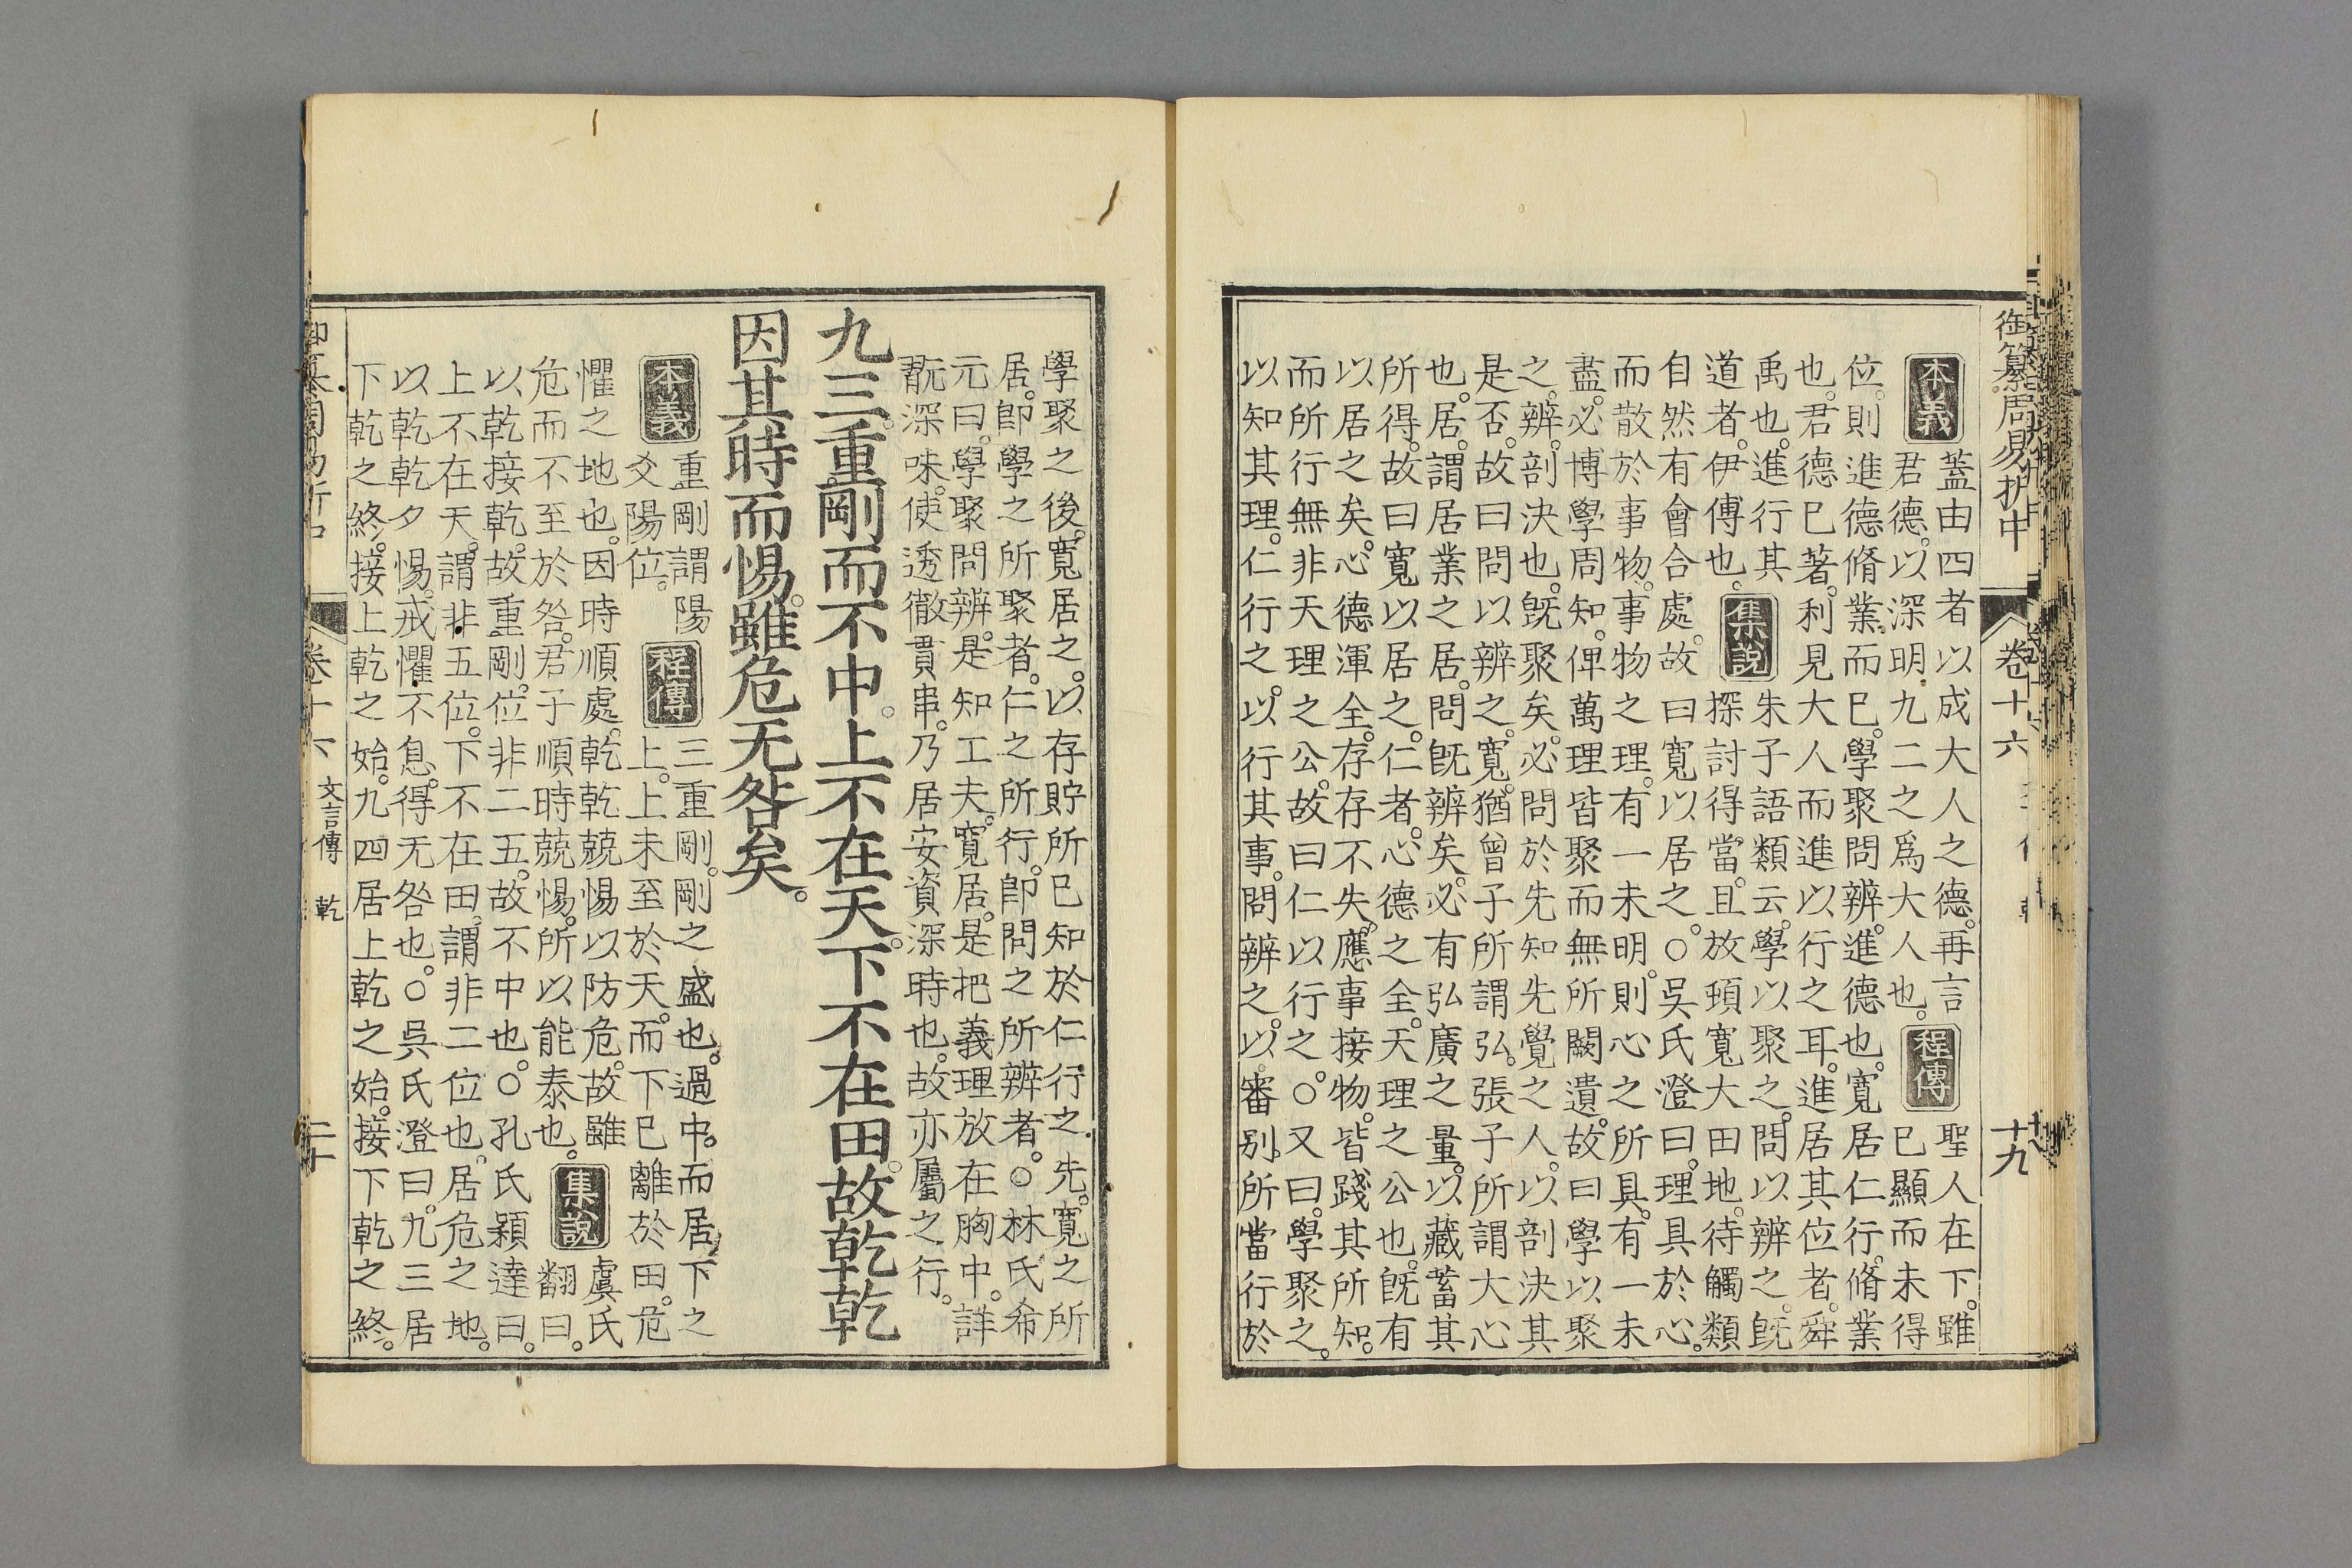 御纂周易折中 卷十六 十九
本義 蓋由四者以成大人之德。再言
君德。以深明九二之爲大人也。
程傳 聖人在下。雖
已顯而未得
位。則進德脩業而已。學聚問辨。進德也。寬居仁行。脩業
也。君德已著。利見大人而進以行之耳。進居其位者。舜
禹也。進行其
道者。伊傅也。
集說 朱子語類云。學以聚之。問以辨之。旣
探討得當。且放頓寬大田地。待觸類
自然有會合處。故曰寬以居之。○吳氏澄曰。理具於心。
而散於事物。事物之理。有一未明。則心之所具。有一未
盡。必博學周知。俾萬理皆聚而無所闕遺。故曰學以聚
之。辨。剖決也。旣聚矣。必問於先知先覺之人。以剖決其
是否。故曰問以辨之。寬。猶曾子所謂弘。張子所謂大心
也。居。謂居業之居。問旣辨矣。必有弘廣之量。以藏蓄其
所得。故曰寬以居之。仁者。心德之全。天理之公也。旣有
以居之矣。心德渾全。存存不失。應事接物。皆踐其所知。
而所行無非天理之公。故曰仁以行之。○又曰。學聚之。
以知其理。仁行之。以行其事。問辨之。以審別所當行於
學聚之後。寬居之。以存貯所已知於仁行之先。寬之所
居。卽學之所聚者。仁之所行。卽問之所辨者。○林氏希
元曰。學聚問辨。是知工夫。寬居。是把義理放在胸中。詳
翫深味。使透徹貫串。乃居安資深時也。故亦屬之行。
九三。重剛而不中。上不在天。下不在田。故乾乾
因其時而惕。雖危无咎矣。
本義 重剛謂陽
爻陽位。
程傳 三重剛。剛之盛也。過中。而居下之
上。上未至於天。而下已離於田。危
懼之地也。因時順處。乾乾兢惕以防危。故雖
危而不至於咎。君子順時兢惕。所以能泰也。
集說 虞氏
翻曰。
以乾接乾。故重剛。位非二五。故不中也。○孔氏穎達曰。
上不在天。謂非五位。下不在田。謂非二位也。居危之地。
以乾乾夕惕。戒懼不息。得无咎也。○吳氏澄曰。九三居
下乾之終。接上乾之始。九四居上乾之始。接下乾之終。
卷十六 文言傳 乾 二十